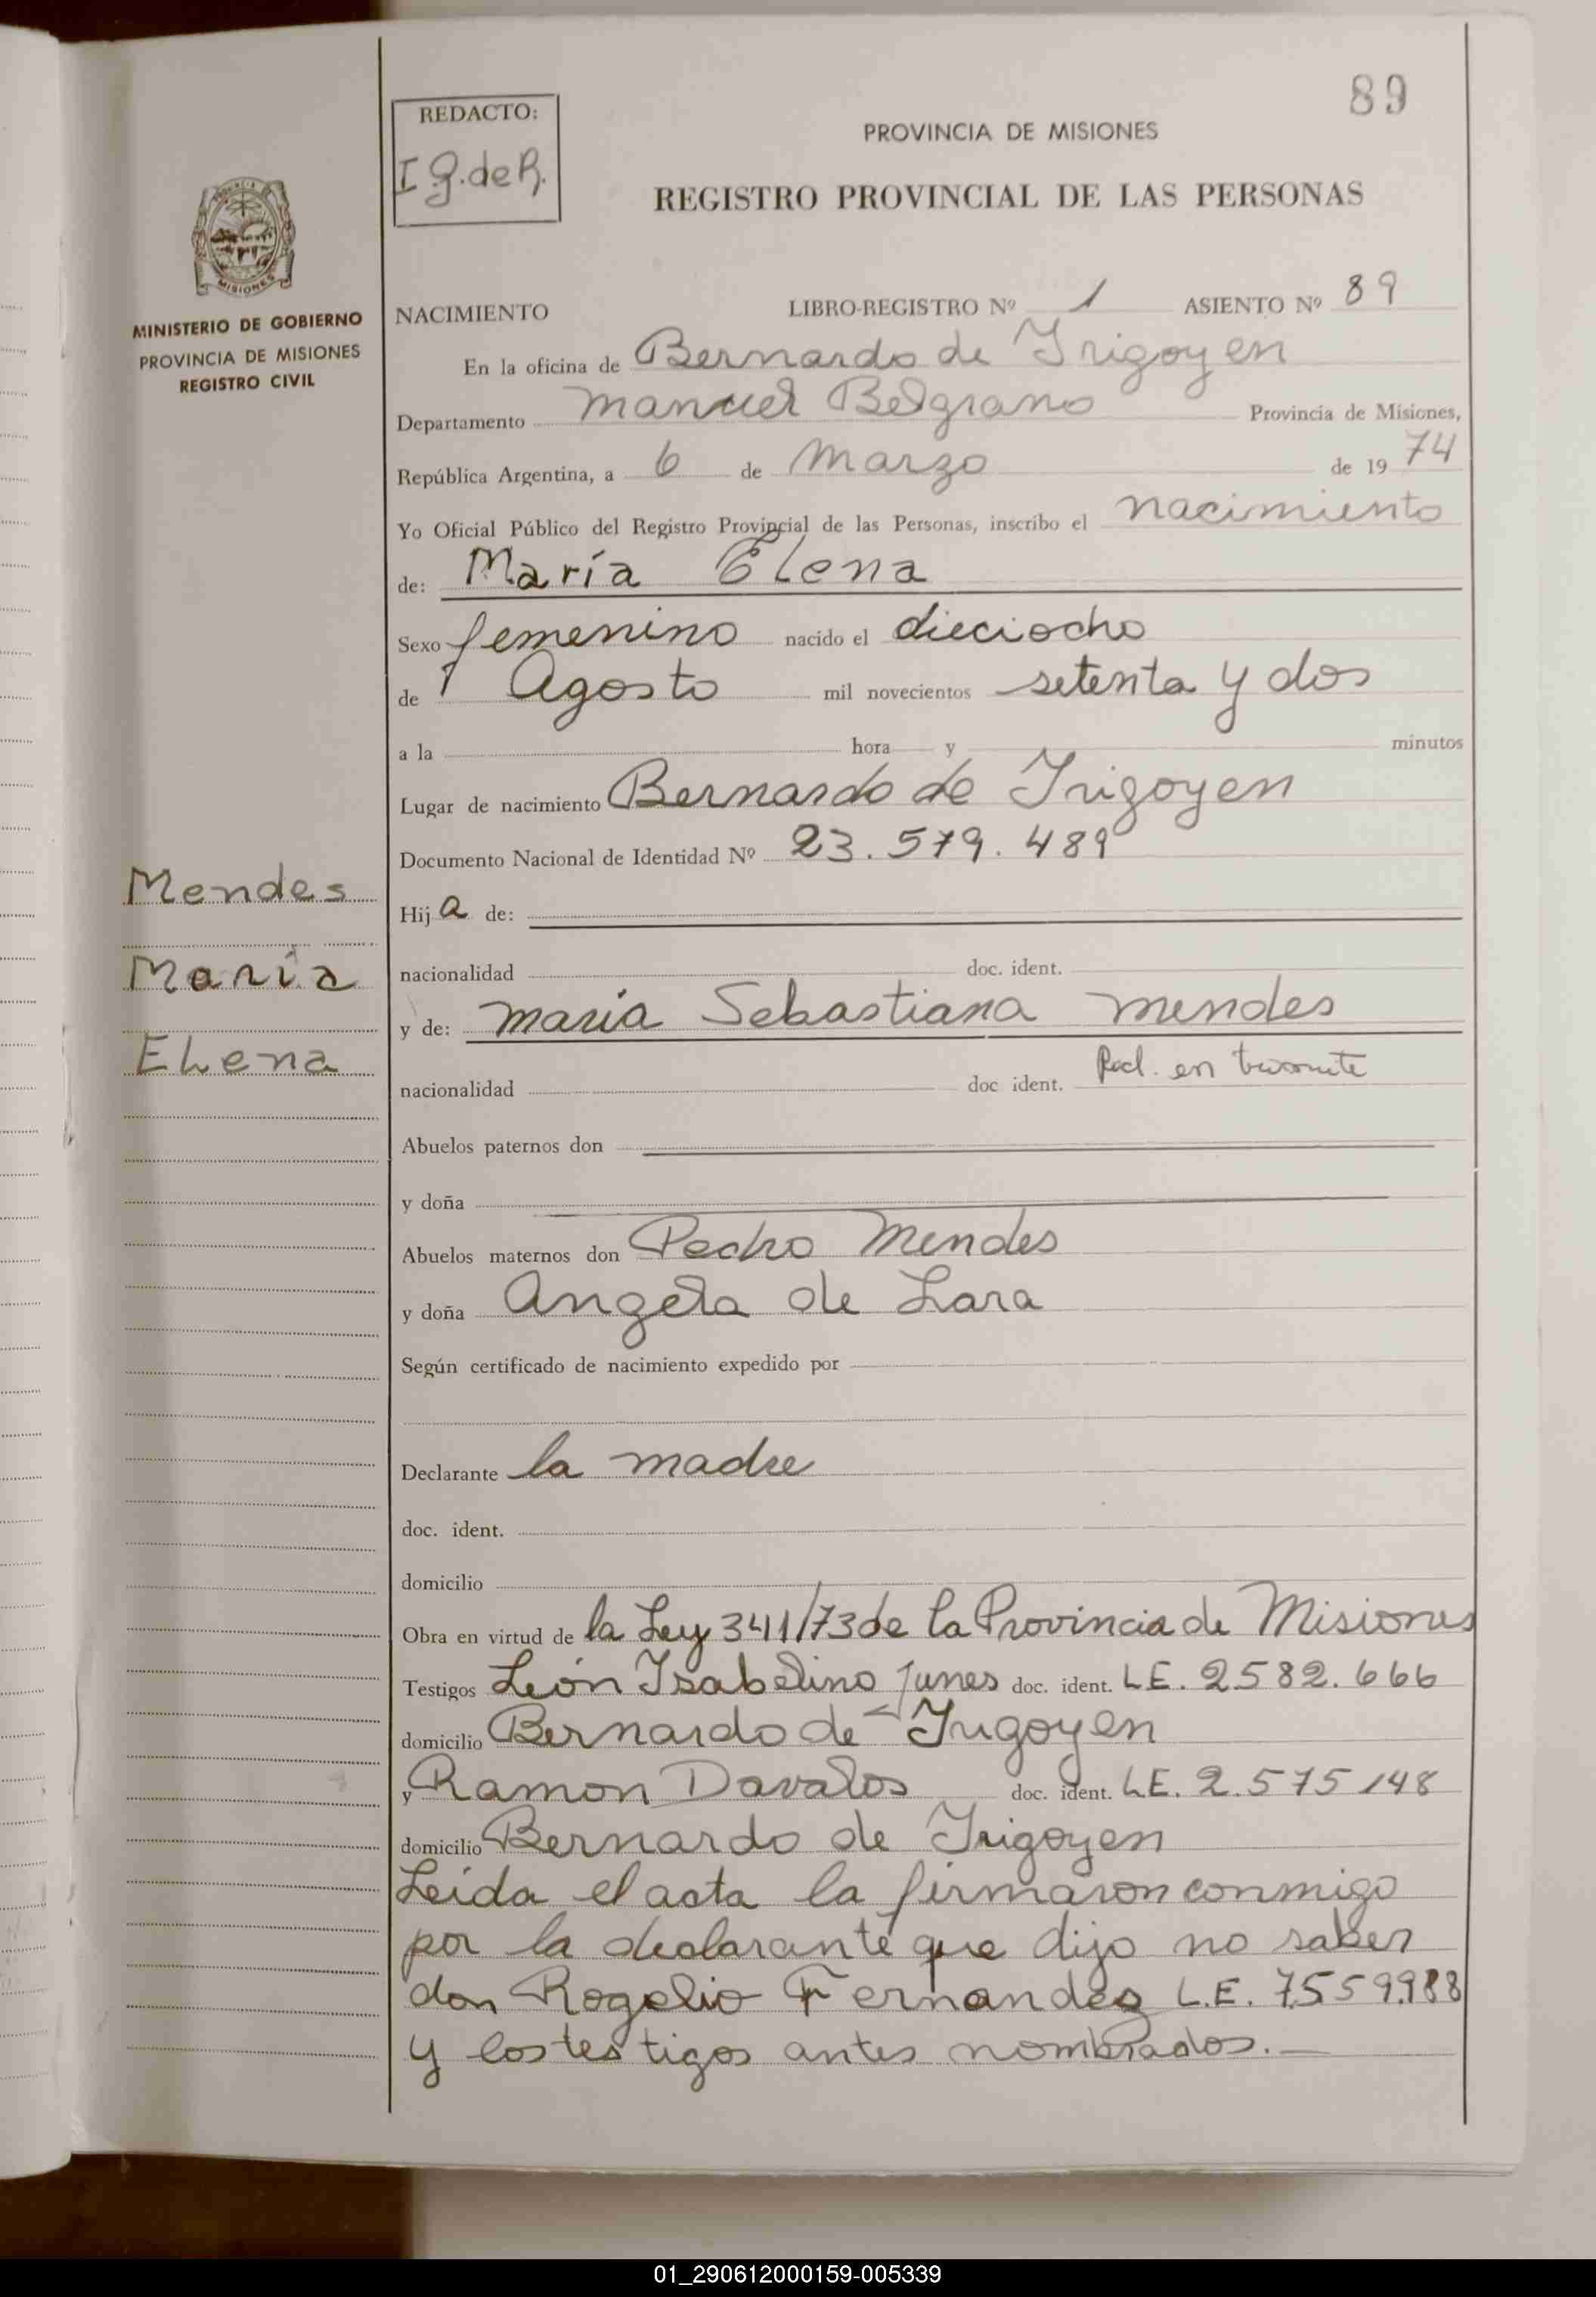 89
REDACTO:
I G. de R.
PROVINCIA DE MISIONES
REGISTRO PROVINCIAL DE LAS PERSONAS
MISIONES
MINISTERIO DE GOBIERNO
PROVINCIA DE MISIONES
REGISTRO CIVIL
NACIMIENTO LIBRO-REGISTRO Nº 1 ASIENTO Nº 89
En la oficina de Bernardo de Irigoyen
Departamento Manuel Belgrano Provincia de Misiones,
República Argentina, a 6 de Marzo de 1974
Yo Oficial Público del Registro Provincial de las Personas, inscribo el nacimiento
de: María Elena
Sexo femenino nacido el dieciocho
de Agosto mil novecientos setenta y dos
a la hora y minutos
Lugar de nacimiento Bernardo de Irigoyen
Documento Nacional de Identidad Nº 23.579.489
Mendes
María
Elena
Hija de:
nacionalidad doc. ident.
y de: María Sebastiana Mendes
nacionalidad doc ident. Recl. en tramite
Abuelos paternos don
y doña
Abuelos maternos don Pedro Mendes
y doña Angela de Lara
Según certificado de nacimiento expedido por
Declarante la madre
doc. ident.
domicilio
Obra en virtud de la Ley 341/73 de la Provincia de Misiones
Testigos León Isabelino Junes doc. ident. LE. 2582.666
domicilio Bernardo de Irigoyen
y Ramon Davalos doc. ident. LE. 2.575148
domicilio Bernardo de Irigoyen
Leida el acta la firmaron conmigo
por la declarante que dijo no saber
don Rogelio Fernandez L.E. 7.559.988
y los testigos antes nombrados.
01_290612000159-005339